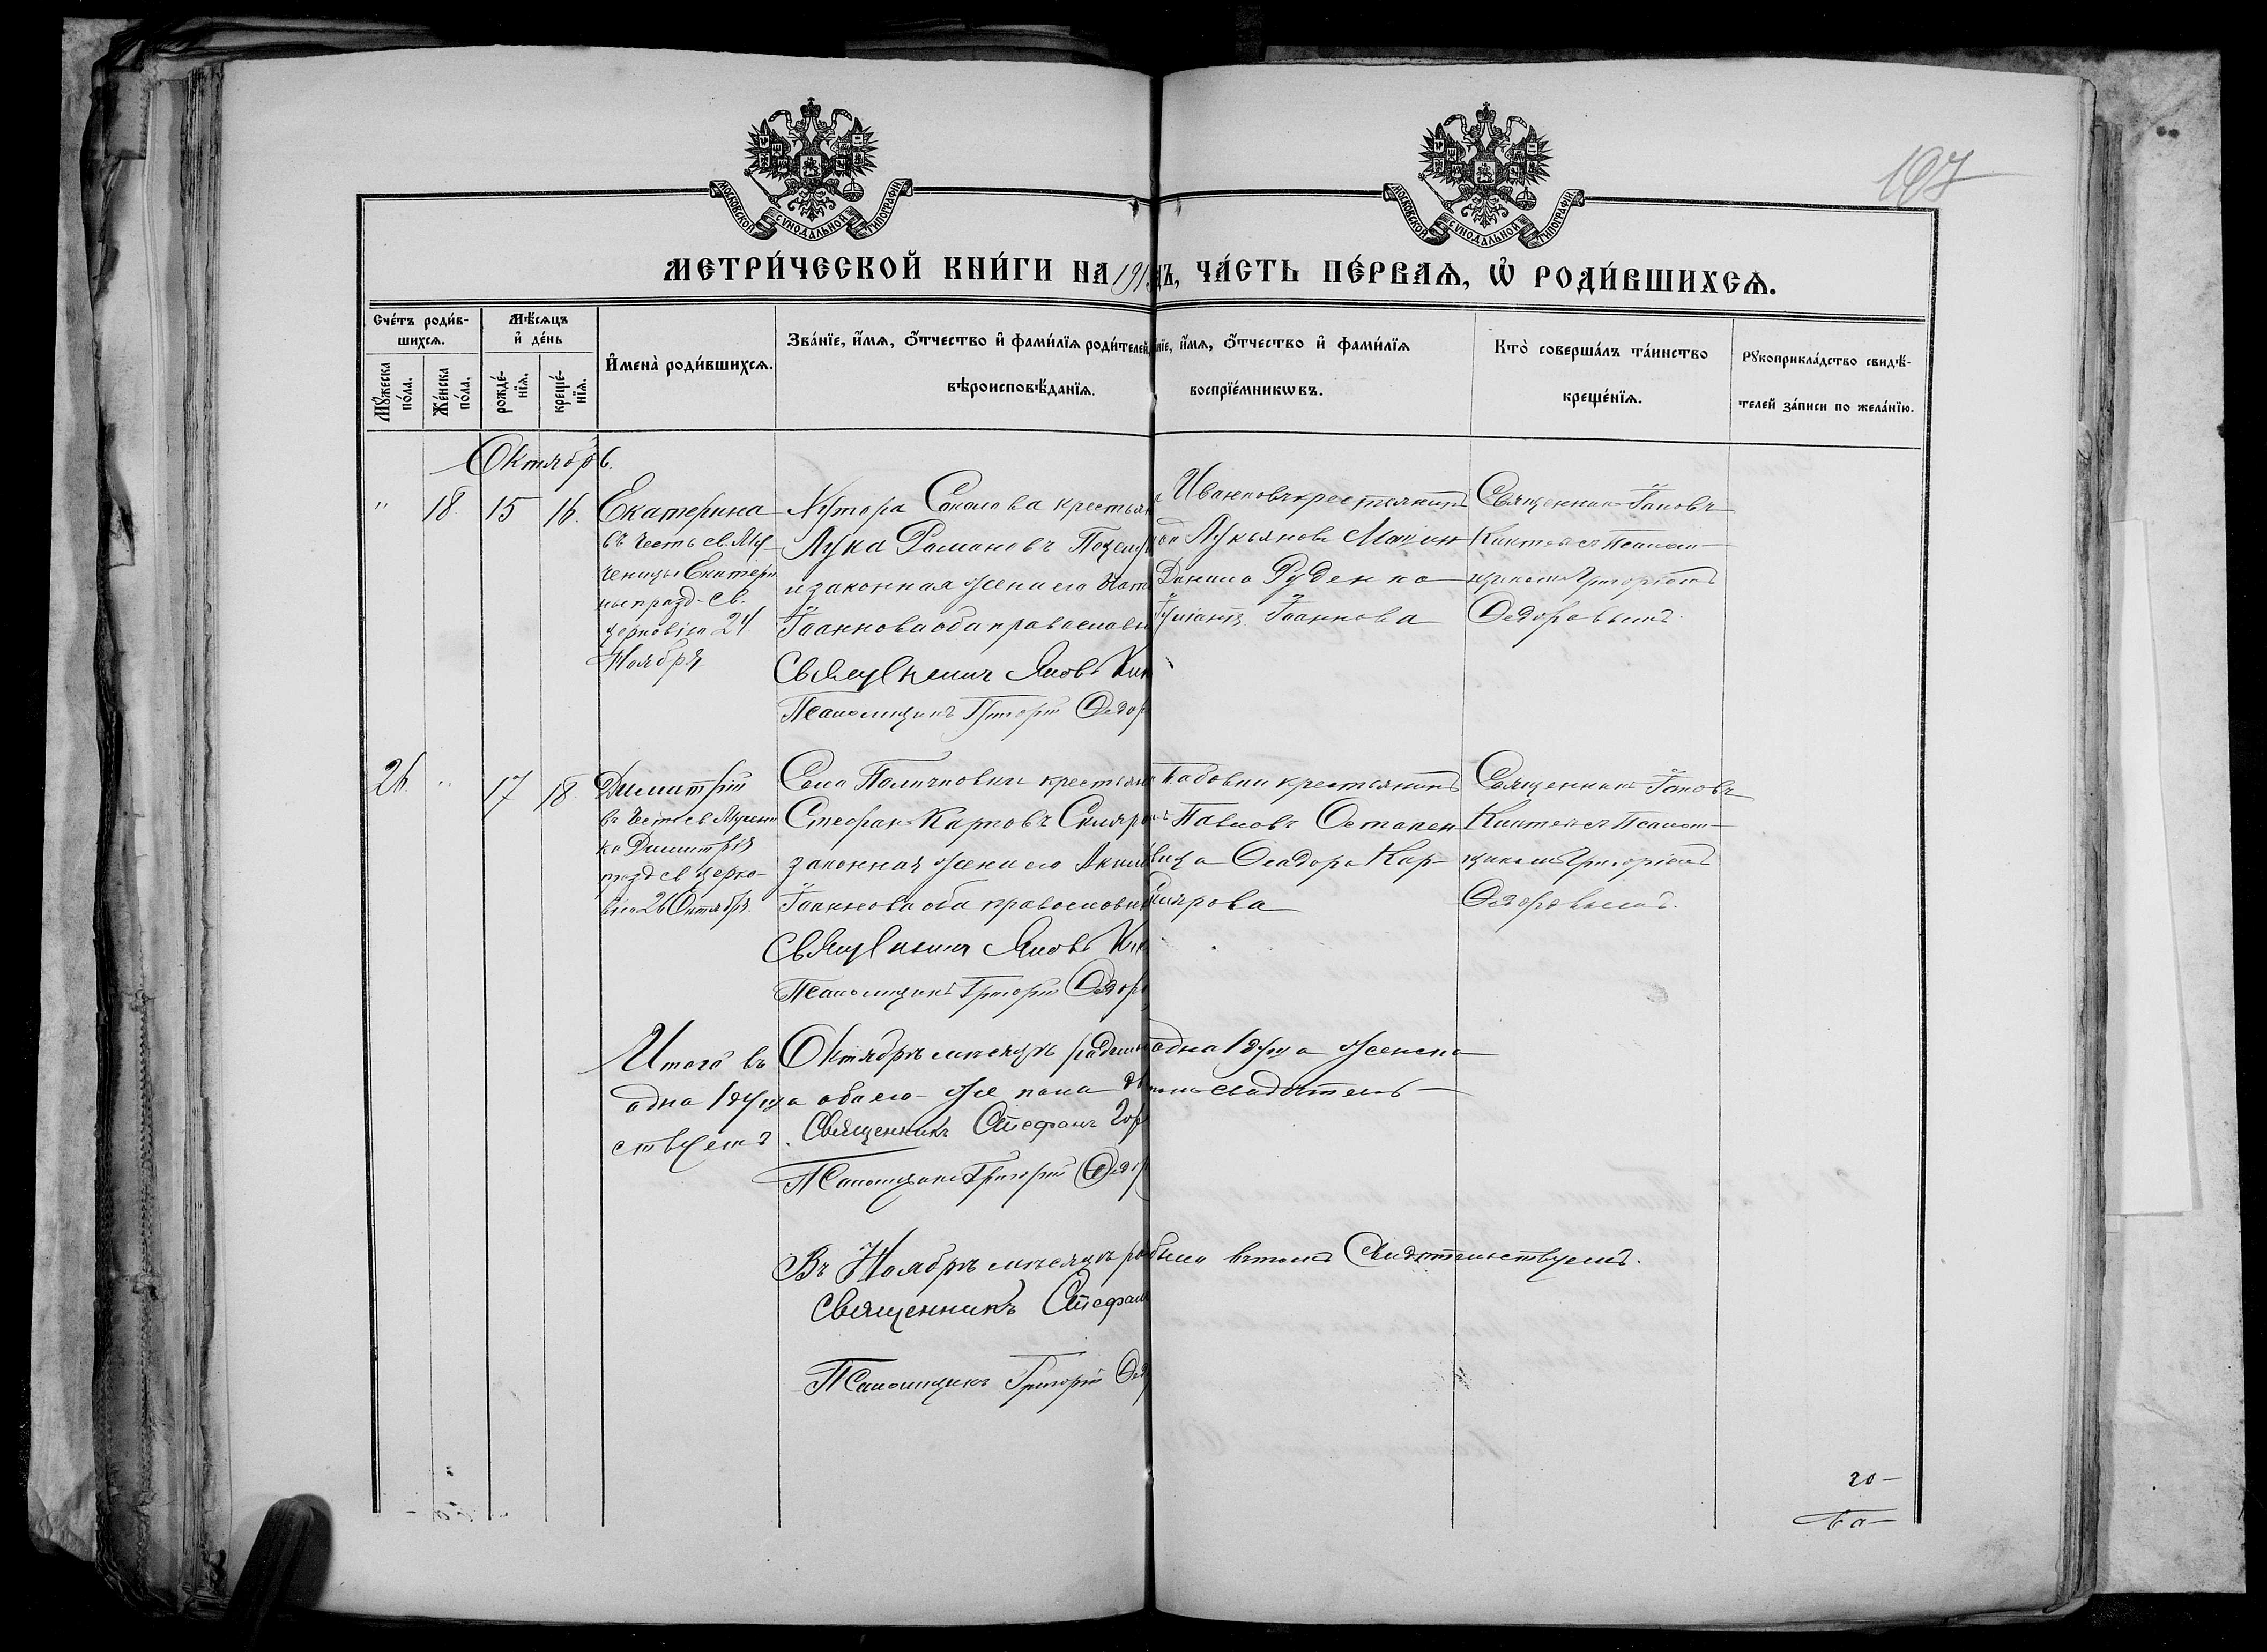 МОСКОВСКОЙ СѴНОДАЛЬНОЙ ТИПОГРАФІИ
МОСКОВСКОЙ СѴНОДАЛЬНОЙ ТИПОГРАФІИ
197
МЕТРИ́ЧЕСКОЙ КНИ́ГИ НА 191 ДЪ, ЧА́СТЬ ПЕ́РВАѦ, Ѡ҆ РОДИ́ВШИХСѦ.
Сче́тъ роди́в-
шихсѧ.
Мѣ́сѧцъ
и҆ де́нь
Мꙋ́жеска по́ла.
Же́нска по́ла.
рожде́-нїѧ.
креще́-нїѧ.
И҆мена̀ роди́вшихсѧ.
Зва́нїе, и҆́мѧ, ѻ҆́тчество и҆ фами́лїѧ роди́телей,
вѣроисповѣ́данїѧ.
нїе, и҆́мѧ, ѻ҆́тчество и҆ фами́лїѧ
воспрїе́мникѡвъ.
Кто̀ соверша́лъ та́инство
креще́нїѧ.
Рꙋкоприкла́дство свидѣ́-
телей за́писи по жела́нїю.
Октябрь.
" 18 15 16.
Екатерина
въ честь св. Му-
ченицы Екатери
ны празд. св.
церковію 24
Ноября
Хутора Соколова крестьян
Лука Романовъ
и законная жена его Ната
Іоаннова оба православн
Священникъ Яковъ Кик
Псаломщикъ Григорій Ѳедор
Ивановъ крестьянинъ
Лукьяновъ
Данила Руденко
Іоаннова
Священникъ Іаковъ
съ Псалом-
щикомъ Григоріемъ
Ѳедоровымъ.
26. " 17 18.
Димитрій
въ честь св. Мучени
ка Димитрія
празд св церко-
вію 26 Октября.
Села крестьян
Стефанъ Карповъ Скляро
законная жена его Акил
Іоаннова оба православн
Священникъ Яковъ Кик
Псаломщикъ Григорій Ѳедоро
крестьянинъ
Павловъ Остапен
Ѳеодора Кар-
клярова
Священникъ Іаковъ
съ Псалом-
щикомъ Григоріемъ
Ѳедоровымъ.
Итого въ Октябрѣ мѣсяцѣ родило одна 1 душа женска
одна 1 душа обоего же пола дв свидѣтель-
ствуемъ.
Священникъ Стефанъ Гор
Псаломщикъ Григорій Ѳедор
Въ Ноябрѣ мѣсяцѣ ро было въ томъ Свидѣтельствуемъ.
Священникъ Стефан
Псаломщикъ Григорій Ѳед
20 —